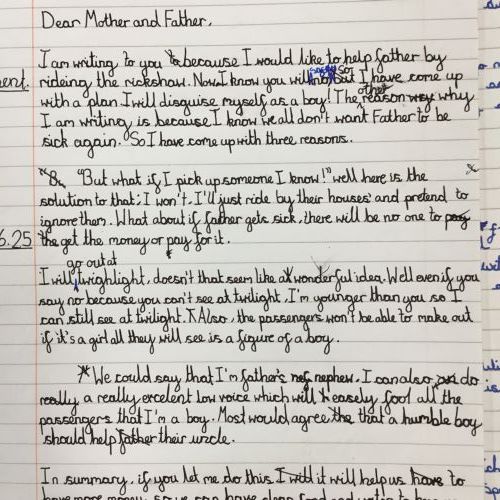 Dear Mother and Father,
I am writing to you because I would like to help father by
rideing the rickshaw. Now I know you will say no so I have come up
with a plan I will disguise myself as a boy! The other reason why
I am writing is because I know we all don't want Father to be
sick again. So I have come up with three reasons.
"But what if I pick up someone I know!" well here is the
solution to that; I won't. I'll just ride by their houses and pretend to
ignore them. What about if father gets sick, there will be no one to pay
6.25
the get the money or pay for it.
go out at
I will twighlight, doesn't that seem like a wonderful idea. Well even if you
say no because you can't see at twilight, I'm younger than you so I
can still see at twilight. Also, the passengers won't be able to make out
if it's a girl all they will see is a figure of a boy.
We could say that I'm father's nephew. I can also do
really a really excelent low voice which will easely fool all the
passengers that I'm a boy. Most would agree that a humble boy
should help father their uncle.
In summary, if you let me do this, I will it will help us have to